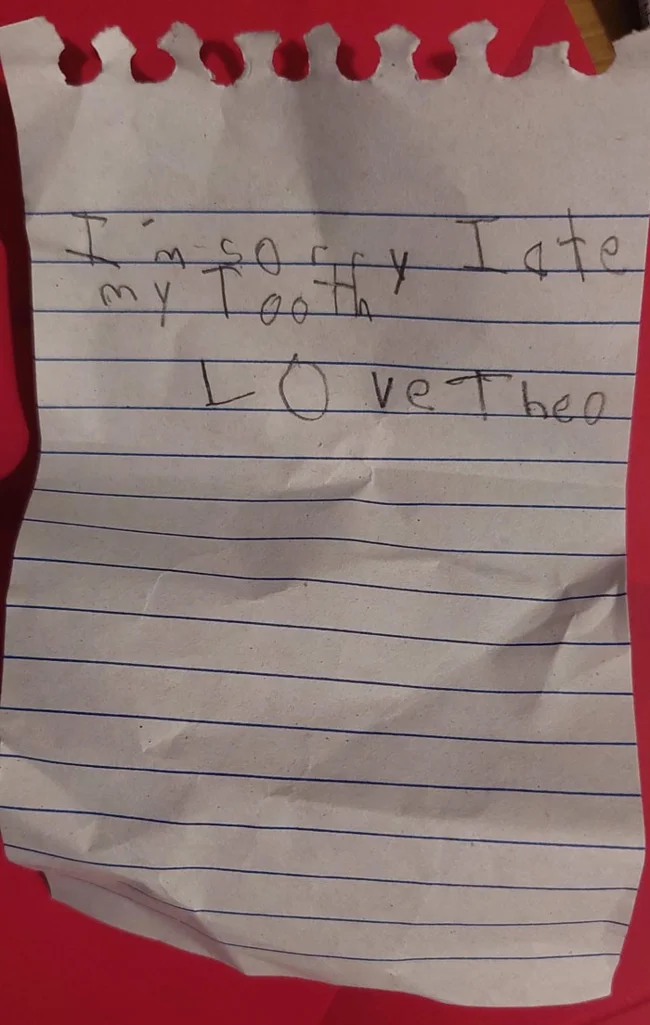 I'm sorry I ate
my Tooth
LOve Theo